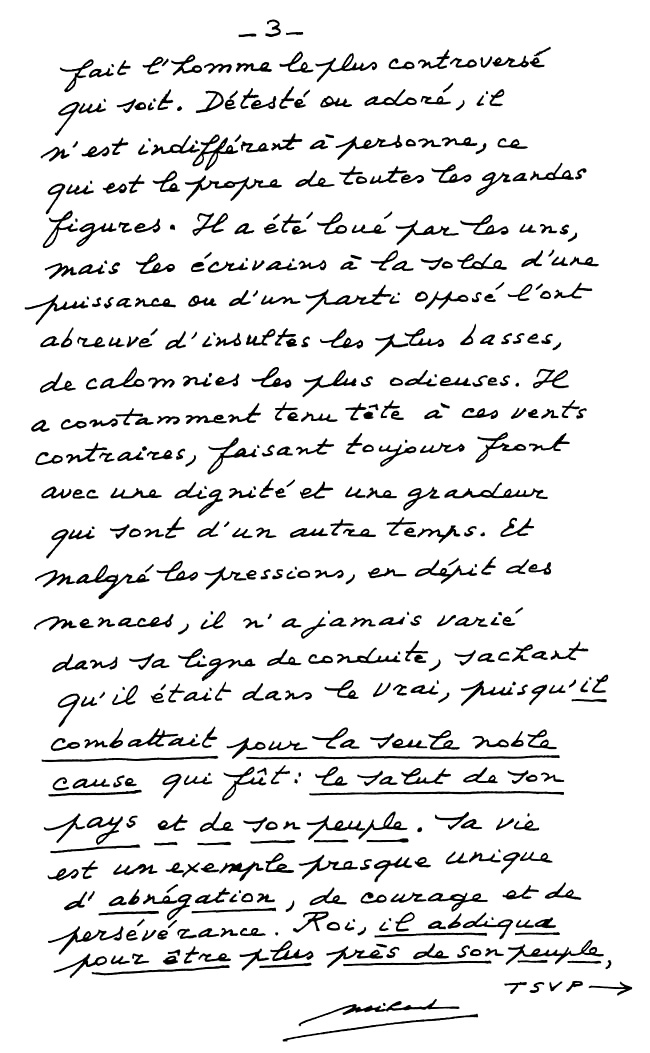 - 3 -
fait l'homme le plus controversé
qui soit. Détesté ou adoré, il
n'est indifférent à personne, ce
qui est le propre de toutes les grandes
figures. Il a été loué par les uns,
mais les écrivains à la solde d'une
puissance ou d'un parti opposé l'ont
abreuvé d'insultes les plus basses,
de calomnies les plus odieuses. Il
a constamment tenu tête à ces vents
contraires, faisant toujours front
avec une dignité et une grandeur
qui sont d'un autre temps. Et
malgré les pressions, en dépit des
menaces, il n'a jamais varié
dans sa ligne de conduite, sachant
qu'il était dans le vrai, puisqu'il
combattait pour la seule noble
cause qui fût : le salut de son
pays et de son peuple. Sa vie
est un exemple presque unique
d'abnégation, de courage et de
persévérance. Roi, il abdiqua
pour être plus près de son peuple,
TSVP →